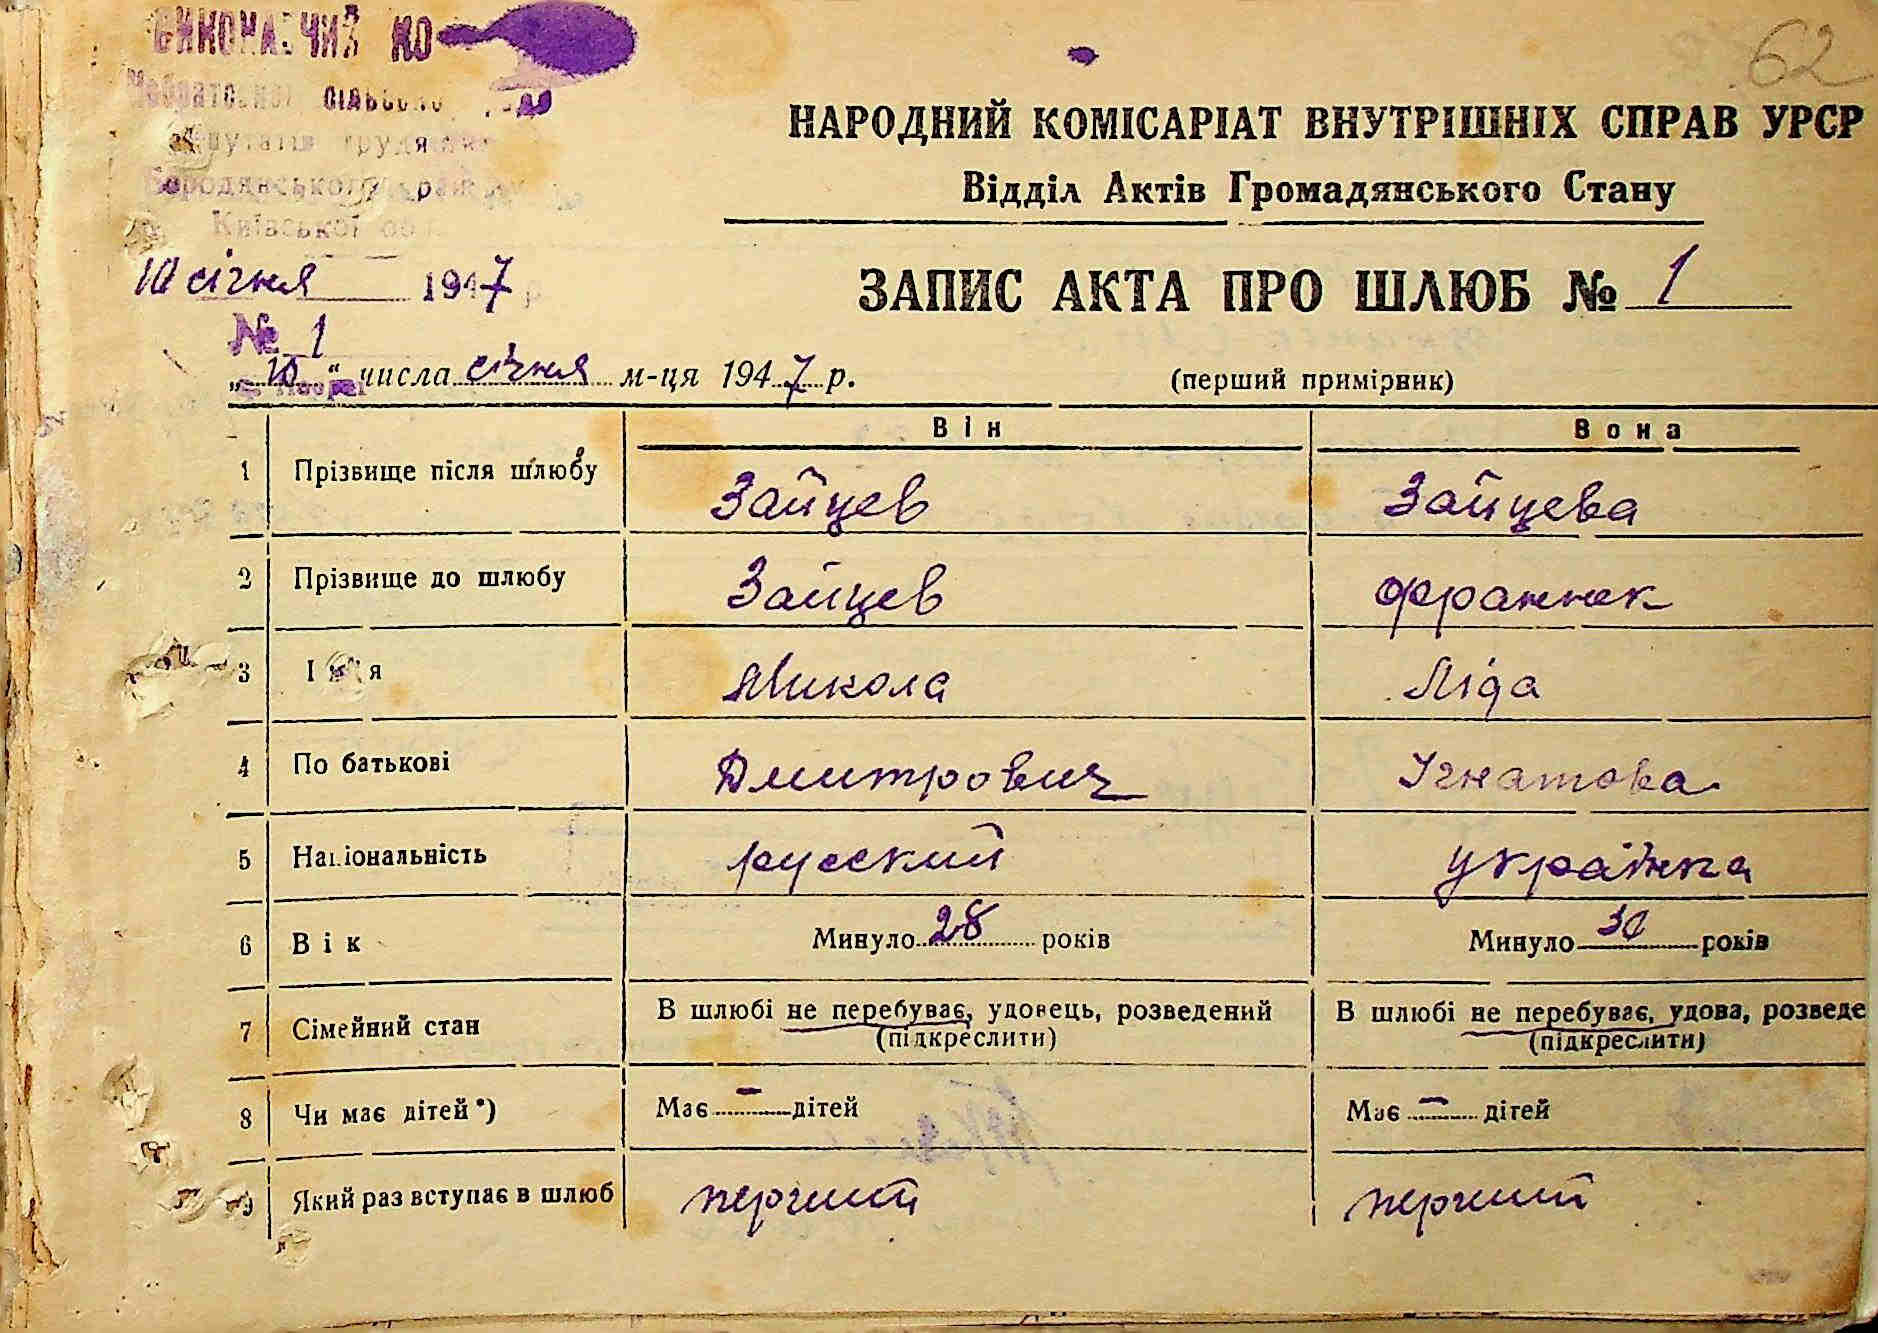 62
ВИКОНАВЧИЙ КО
сільсько
Бородянського рай
Київської об
НАРОДНИЙ КОМІСАРІАТ ВНУТРІШНІХ СПРАВ УРСР
Відділ Актів Громадянського Стану
10 січня 1947 р
ЗАПИС АКТА ПРО ШЛЮБ № 1
№ 1
„10“ числа січня м-ця 1947 р.
(перший примірник)
Він Вона
1 Прізвище після шлюбу Зайцев Зайцева
2 Прізвище до шлюбу Зайцев
3 Ім'я Микола Ліда
4 По батькові Дмитрович Ігнатова
5 Національність русский українка
6 Вік Минуло 28 років Минуло років
7 Сімейний стан В шлюбі не перебуває, удовець, розведений В шлюбі не перебуває, удова, розведе
(підкреслити) (підкреслити)
8 Чи має дітей*) Має – дітей Має – дітей
9 Який раз вступає в шлюб перший перший